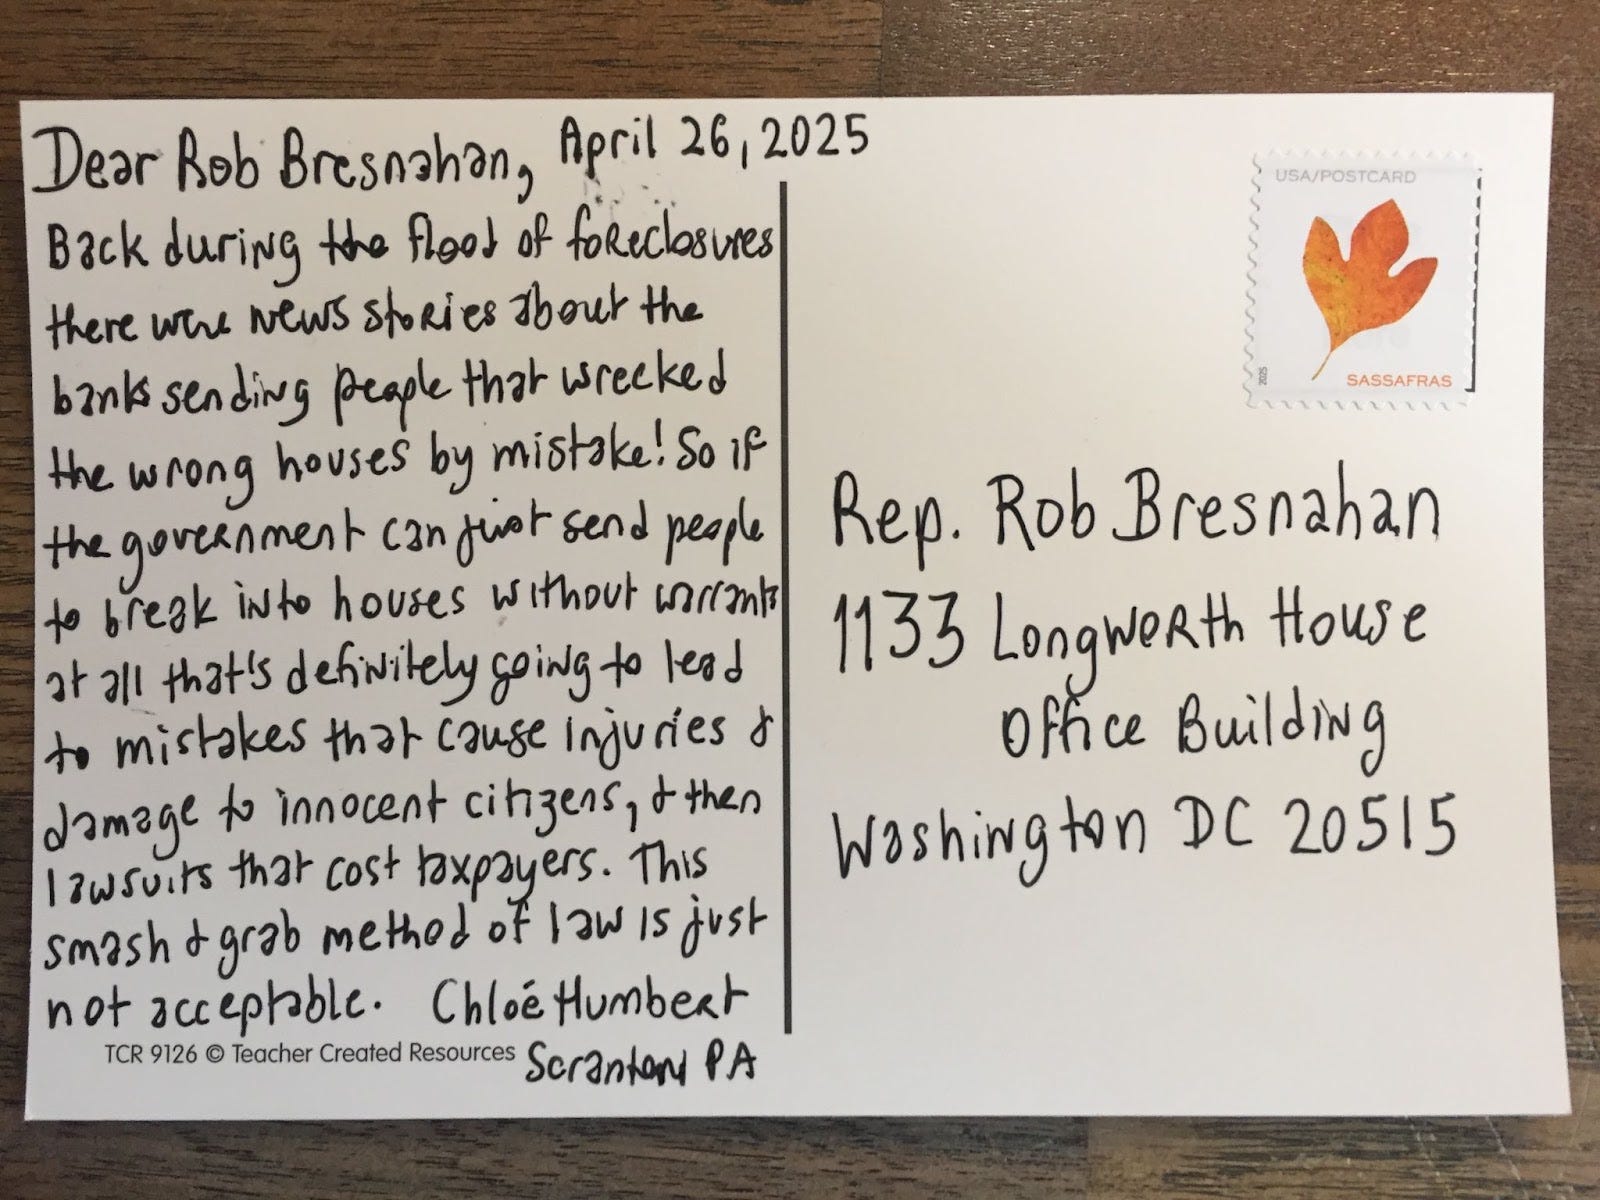 Dear Rob Bresnahan, April 26, 2025
Back during the flood of foreclosures
there were news stories about the
banks sending people that wrecked
the wrong houses by mistake! So if
the government can just send people
to break into houses without warrants
at all that's definitely going to lead
to mistakes that cause injuries &
damage to innocent citizens, & then
lawsuits that cost taxpayers. This
smash & grab method of law is just
not acceptable. Chloé Humbert
TCR 9126 © Teacher Created Resources
Scranton PA
USA/POSTCARD
2025
SASSAFRAS
Rep. Rob Bresnahan
1133 Longworth House
Office Building
Washington DC 20515